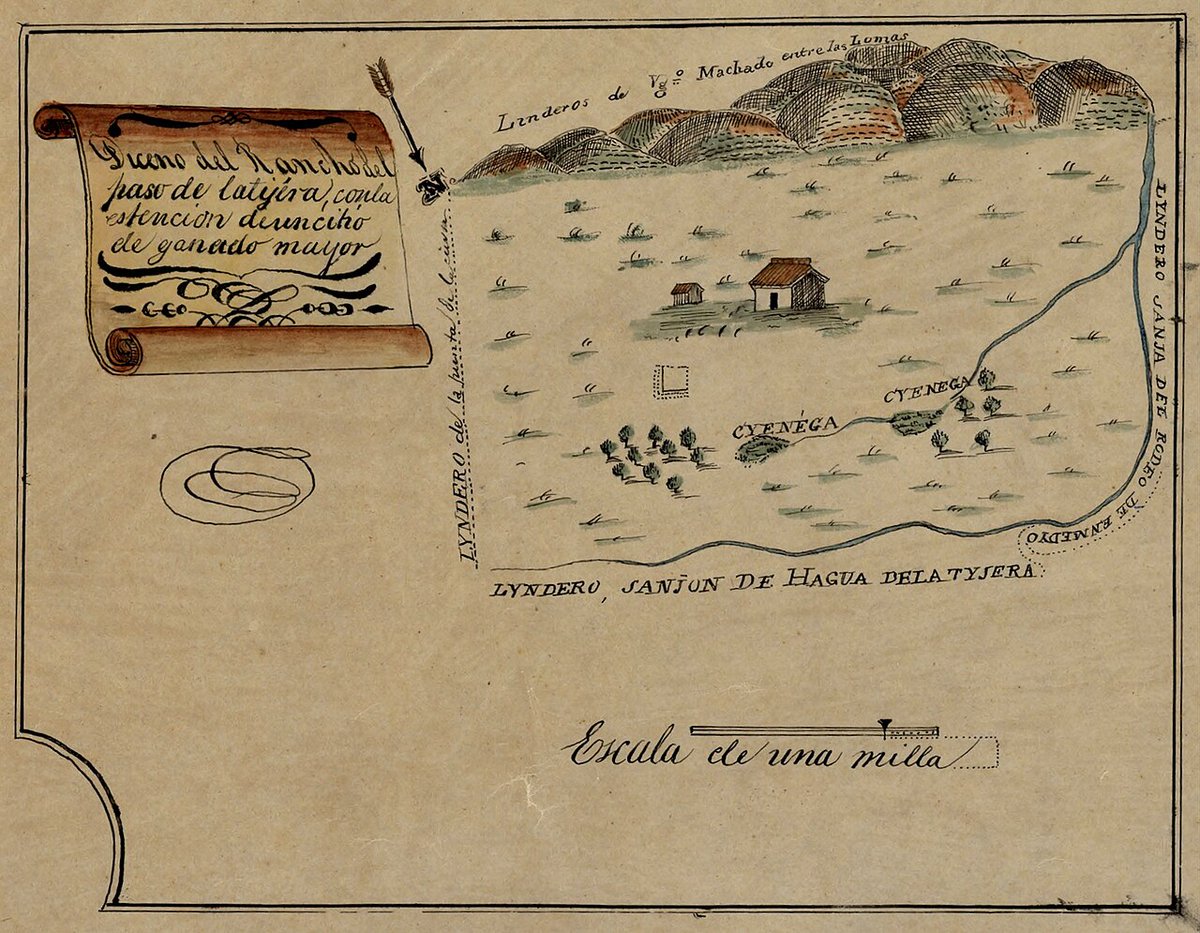 Diceno del Rancho del
paso de latijera, conla
estencion deuncitio
de ganado mayor
Linderos de Yg.º Machado entre las Lomas
N
LYNDERO de la punta de la
LYNDERO SANJA DEL RODEO DE ENMEDYO
CYENEGA
CYENÉGA
LYNDERO, SANJON DE HAGUA DELATYJERA
Escala de una milla